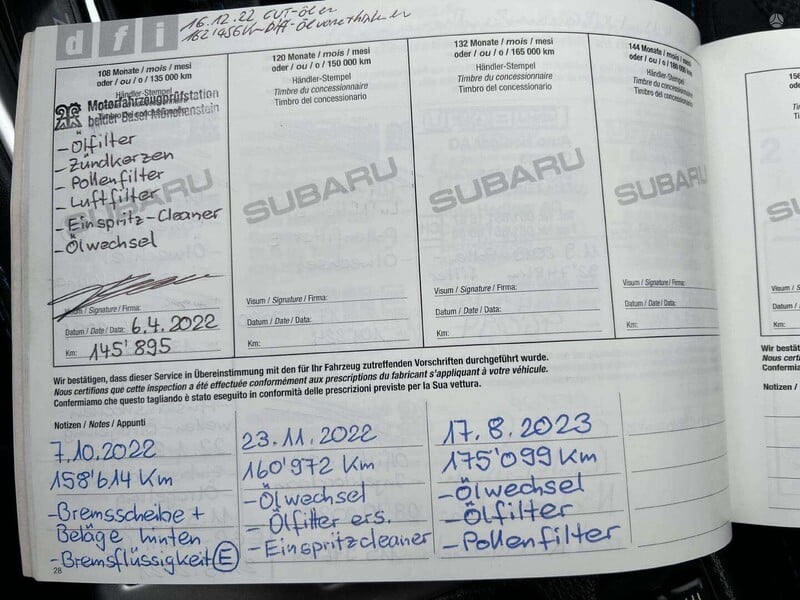 16.12.22 CVT-Öl er
162'456 Km Diff-Öl vorne+hinten er
dfi
108 Monate / mois / mesi
oder / ou / o / 135 000 km
Händler-Stempel
Timbre du concessionnaire
Timbro del concessionario
Motorfahrzeugprüfstation
beider Basel Münchenstein
-Ölfilter
-Zündkerzen
-Pollenfilter
-Luftfilter
-Einspritz-Cleaner
-Ölwechsel
SUBARU
/ Signature / Firma:
Datum / Date / Data: 6.4.2022
Km: 145'895
120 Monate / mois / mesi
oder / ou / o / 150 000 km
Händler-Stempel
Timbre du concessionnaire
Timbro del concessionario
SUBARU
Visum / Signature / Firma:
Datum / Date / Data:
Km:
132 Monate / mois / mesi
oder / ou / o / 165 000 km
Händler-Stempel
Timbre du concessionnaire
Timbro del concessionario
SUBARU
Visum / Signature / Firma:
Datum / Date / Data:
Km:
144 Monate / mois / mesi
oder / ou / o / 180 000 km
Händler-Stempel
Timbre du concessionnaire
Timbro del concessionario
SUBARU
Visum / Signature / Firma:
Datum / Date / Data:
Km:
Wir bestätigen, dass dieser Service in Übereinstimmung mit den für Ihr Fahrzeug zutreffenden Vorschriften durchgeführt wurde.
Nous certifions que cette inspection a été effectuée conformément aux prescriptions du fabricant s'appliquant à votre véhicule.
Confermiamo che questo tagliando è stato eseguito in conformità delle prescrizioni previste per la Sua vettura.
Notizen / Notes / Appunti
7.10.2022
158'614 Km
-Bremsscheibe +
Beläge hinten
-Bremsflüssigkeit E
23.11.2022
160'972 Km
-Ölwechsel
-Ölfilter ers.
-Einspritzcleaner
17.8.2023
175'099 Km
-Ölwechsel
-Ölfilter
-Pollenfilter
28
156
SU
Visum / S
Datum / D
Km:
Wir bestät
Nous certi
Confermia
Notizen /